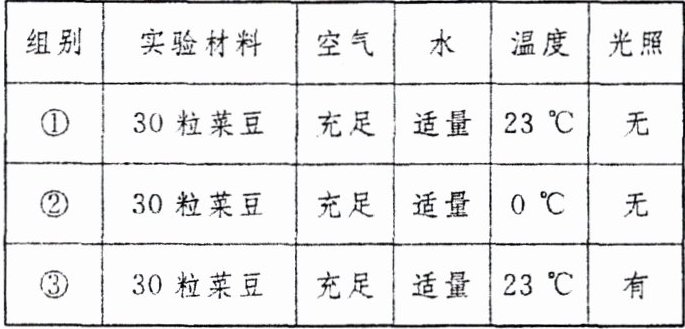 组别 实验材料 空气 水 温度 光照
① 30粒菜豆 充足 适量 23 ℃ 无
② 30粒菜豆 充足 适量 0 ℃ 无
③ 30粒菜豆 充足 适量 23 ℃ 有